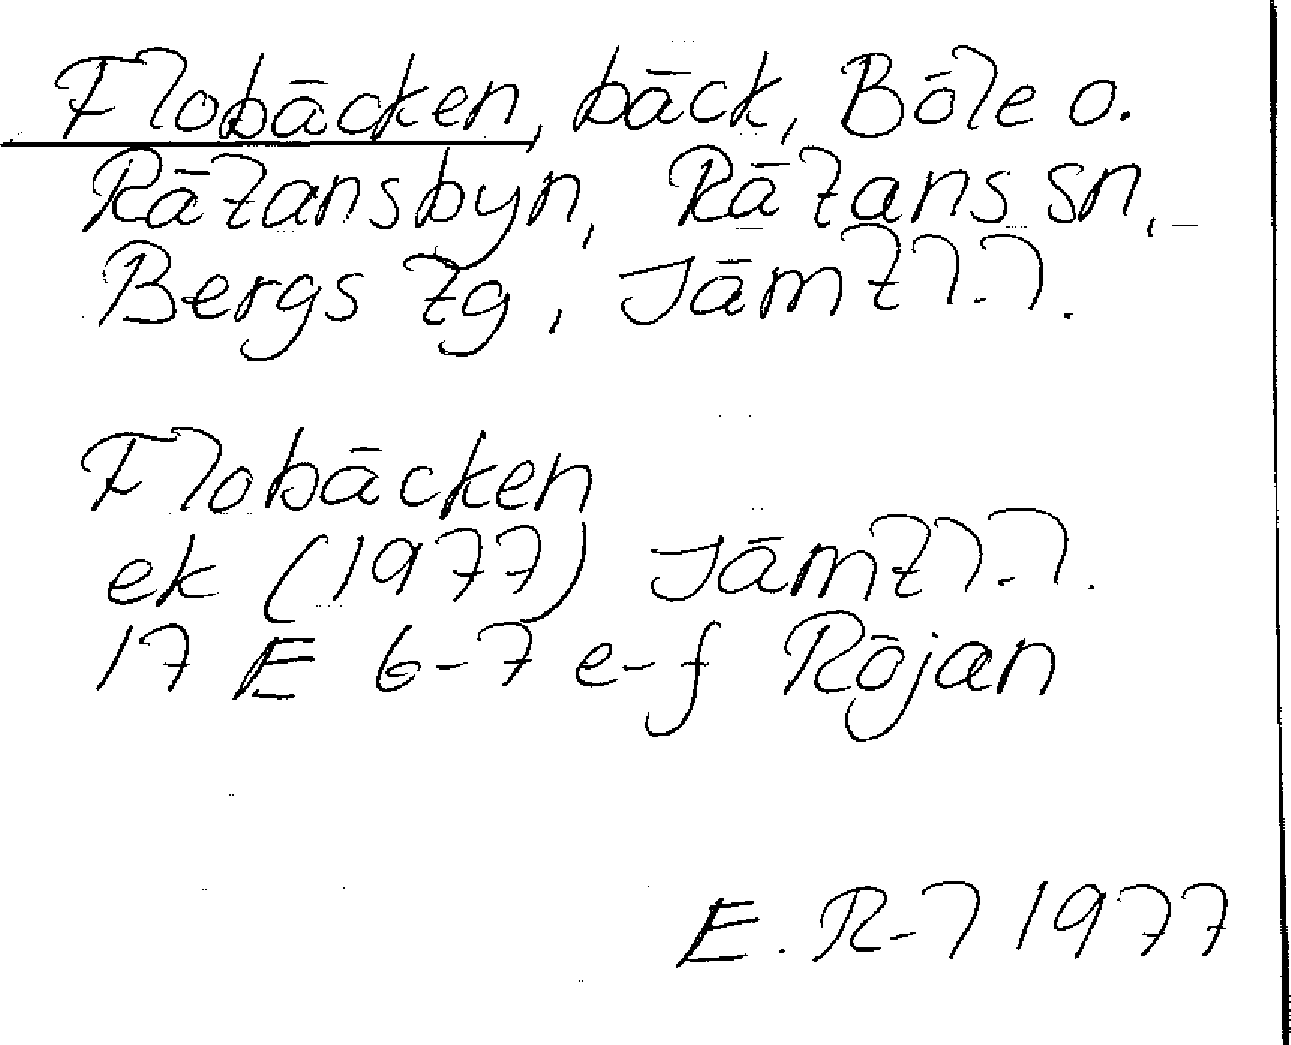 Flobäcken, bäck, Böle o.
Rätansbyn, Rätans sn,
Bergs tg, Jämtl.l.
Flobäcken
ek (1977) Jämtl.l.
17 E 6-7 e-f Röjan
E. R-l 1977